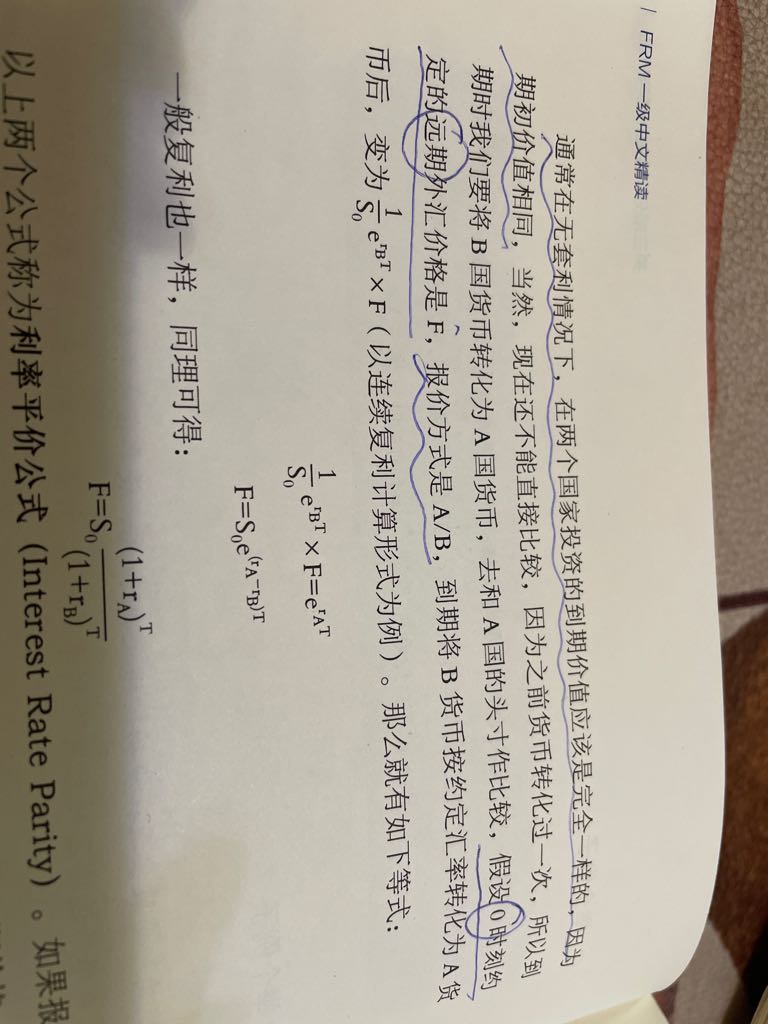 FRM 一级中文精读
通常在无套利情况下，在两个国家投资的到期价值应该是完全一样的，因为
期初价值相同，当然，现在还不能直接比较，因为之前货币转化过一次，所以到
期时我们要将 B 国货币转化为 A 国货币，去和 A 国的头寸作比较，假设 0 时刻约
定的远期外汇价格是 F，报价方式是 A/B，到期将 B 货币按约定汇率转化为 A 货
币后，变为 1/S₀ e^(r_B T) × F（以连续复利计算形式为例）。那么就有如下等式：
1/S₀ e^(r_B T) × F=e^(r_A T)
F=S₀e^((r_A−r_B)T)
一般复利也一样，同理可得：
F=S₀ (1+r_A)^T/(1+r_B)^T
以上两个公式称为利率平价公式（Interest Rate Parity）。如果报